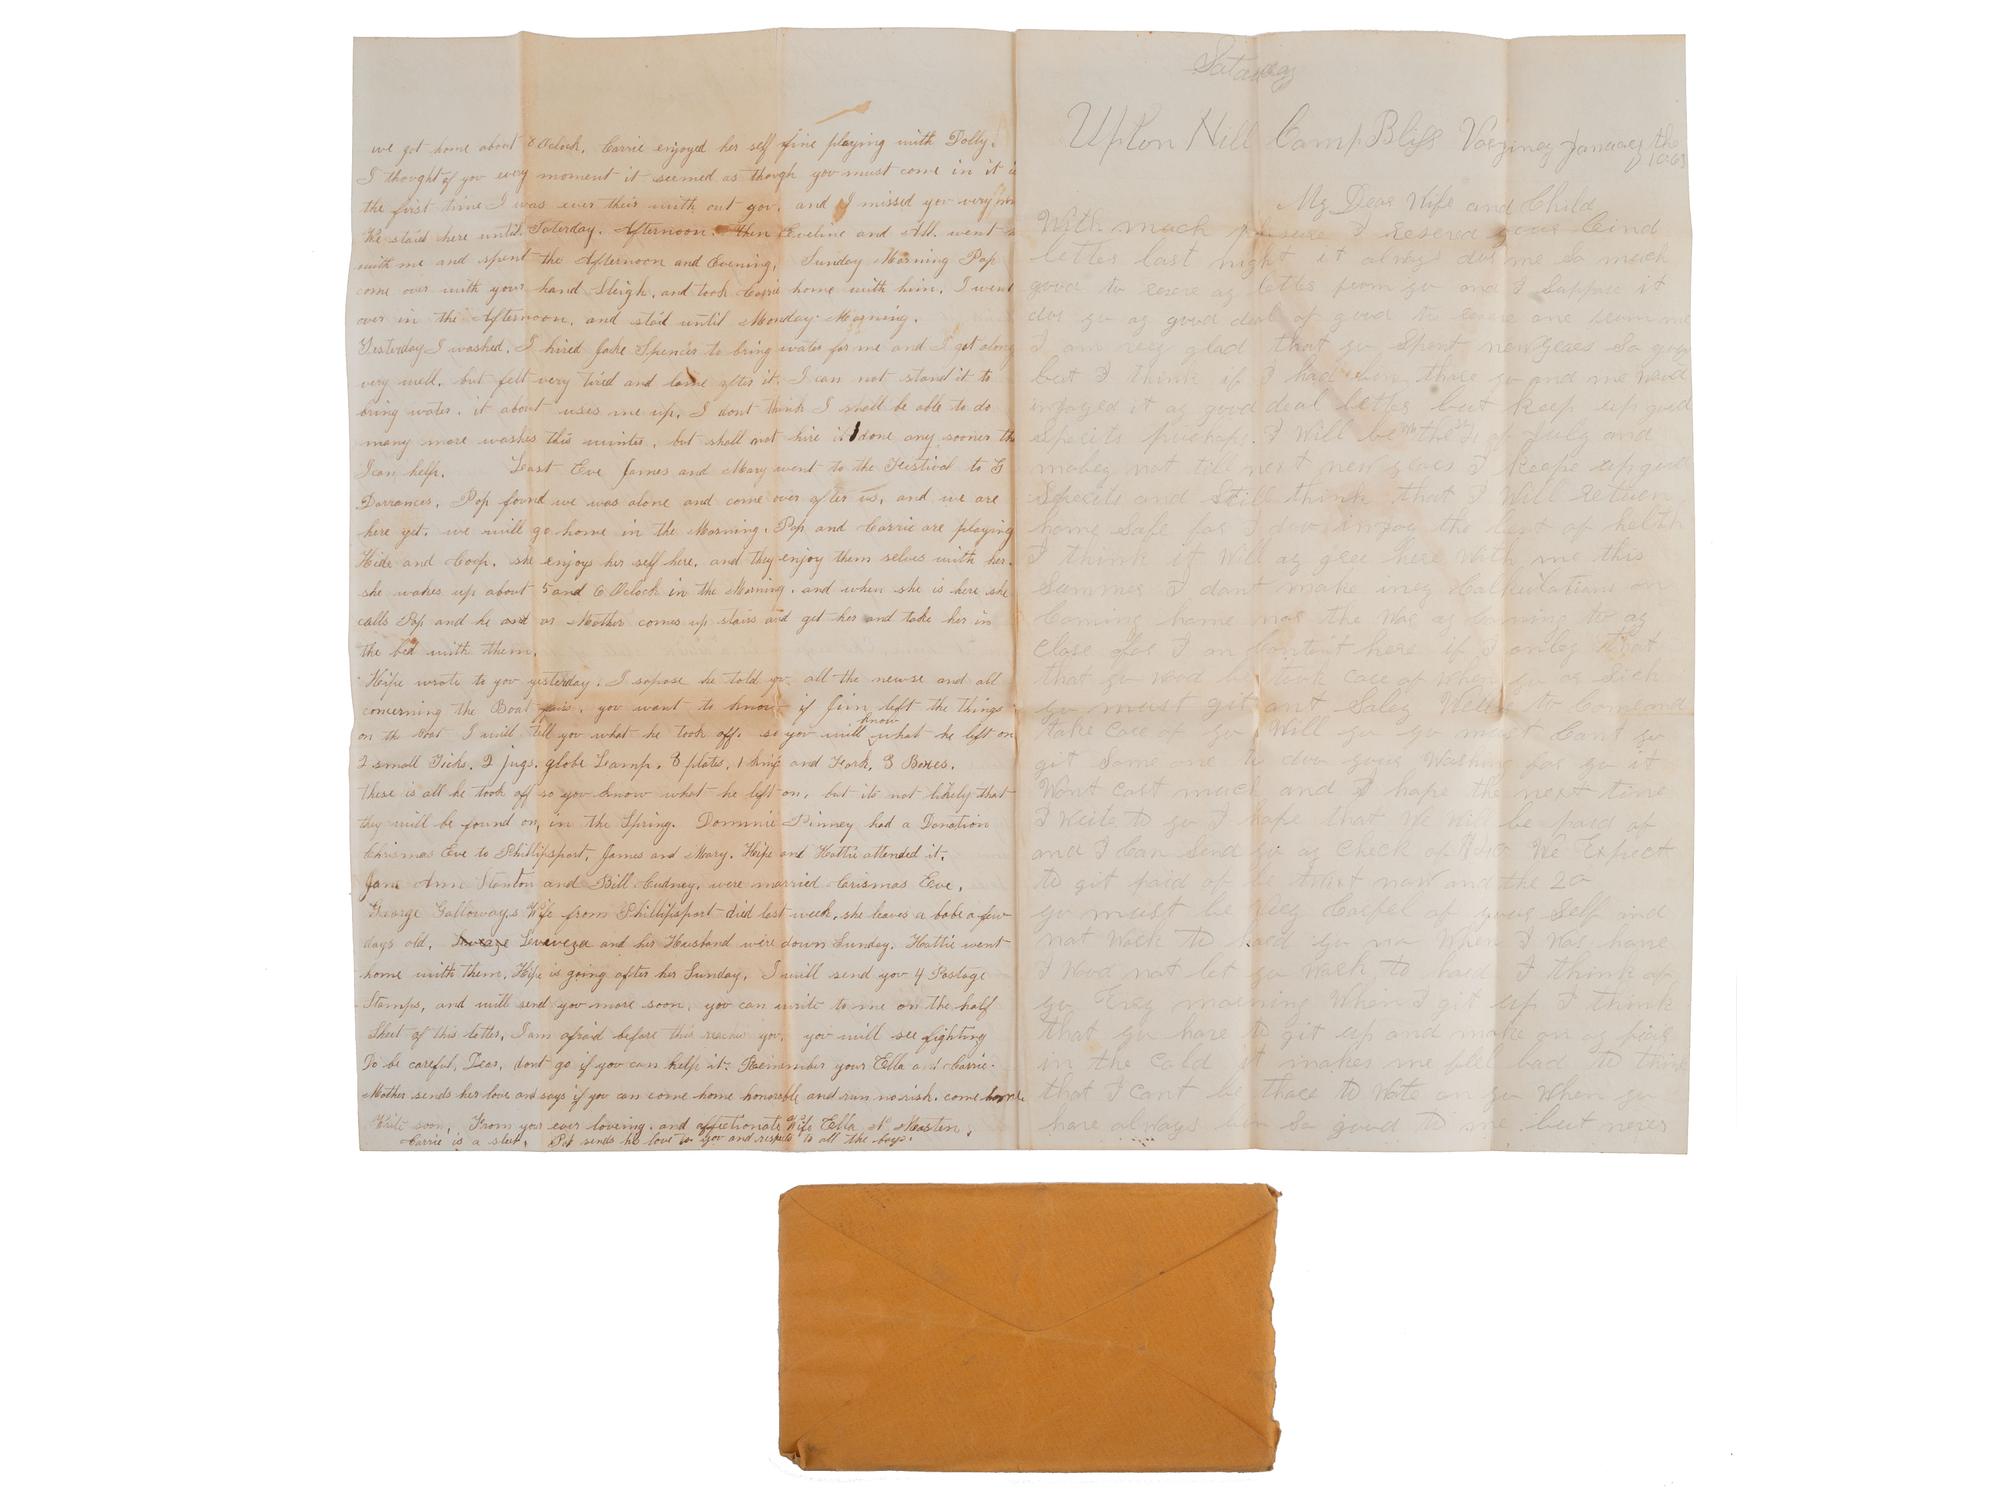 we got home about 8 Oclock. Carrie enjoyed her self fine playing with Dolly.
I thought of you every moment it seemed as though you must come in it is
the first time I was ever their with out you. and I missed you very
We staid here until Saterday. Afternoon. then Eveline and All. went
with me and spent the Afternoon and Evening, Sunday Morning Pop
come over with your hand Sleigh. and took Carrie home with him. I went
over in the Afternoon. and staid until Monday Morning.
Yesterday I washed. I hired Jake Spencer to bring water for me and I got along
very well. but felt very tired and lame after it. I can not stand it to
bring water. it about uses me up. I dont think I shall be able to do
many more washes this winter. but shall not hire it done any sooner
I can help. Last Eve James and Mary went to the Festival to G
Dorrances. Pop found we was alone and come over after us, and we are
here yet. we will go home in the Morning. Pop and Carrie are playing
Hide and Coop. she enjoys her self here. and they enjoy them selves with her.
she wakes up about 5 and 6 Oclock in the Morning. and when she is here she
calls Pop and he and or Mother comes up stairs and get her and take her in
the bed with them.
wrote to you yesterday. I sopose he told you all the newse and all
concerning the Boat you want to know if Jim left the things
on the boat I will tell you what he took off. so you will know what he left on
2 small Ticks. 2 jugs. globe Lamp. 8 plates. 1 knife and Fork. 3 Boxes.
these is all he took off so you know what he left on. but its not likely that
they will be found on, in the Spring. Dominie Pinney had a Donation
Chrismas Eve to Phillipsport. James and Mary. and Hattie attended it.
Jane Ann Stanton and Bill Cudney. were married Carismas Eve.
George Galloways Wife from Phillipsport died last week. she leaves a babe a few
days old. and his Husband were down Sunday. Hattie went
home with them. is going after her Sunday. I will send you 4 Postage
Stamps, and will send you more soon. you can write to me on the half
Sheet of this letter. I am afraid before this reaches you. you will see fighting
Do be careful, Dear, dont go if you can help it. Remember your Ella and Carrie.
Mother sends her love and says if you can come home honorable and run no risk. come home
Write soon. From your ever loveing. and affectionate Wife Ella N Masten.
Carrie is a sleep. Pop sends he love to you and respects to all the boys.
Sataday
Upton Hill Camp Bliss Varginey January the
My Dear Wife and Child
With much plesure I resered your Cind
letter last night it always dus me So much
good to resere ag letter from yo and I Suppose it
dos yo ag good deal of good to resere one from me
I am very glad that yo Spent newyears So
but I think if I had bin thare yo and me Wood
injoyed it ag good deal better but keep up good
Specits I Will be the of July and
mabey not till next newyears I keepe up good
Specits and Still think that I Will return
home Safe for I dow injoy the best of helth
I think it Will ag gree here With me this
Summer I dont make iney Calkulations on
Coming home nor the War ag Coming to ag
Close for I am Content here if I onley
that yo Wood be took Care of When yo ar Sick
yo must git ant Saley to Come and
take Care of yo Will yo yo must Cant yo
git Some one to dow your Washing for yo it
Wont cost much and I hope the next time
I Write to yo I hope that We Will be paid of
and I Can Send yo ag Check of We Expect
to git paid of be now and the 20
yo must be very Carfel of your Self and
not Work to hard yo no When I Was home
I Wood not let yo Work to hard I think of
yo Evey morning When I git up I think
that yo have to git up and make on ag fire
in the Cold it makes me feel bad to think
that I Cant be thare to Wate on yo When yo
have always bin So good to me but never